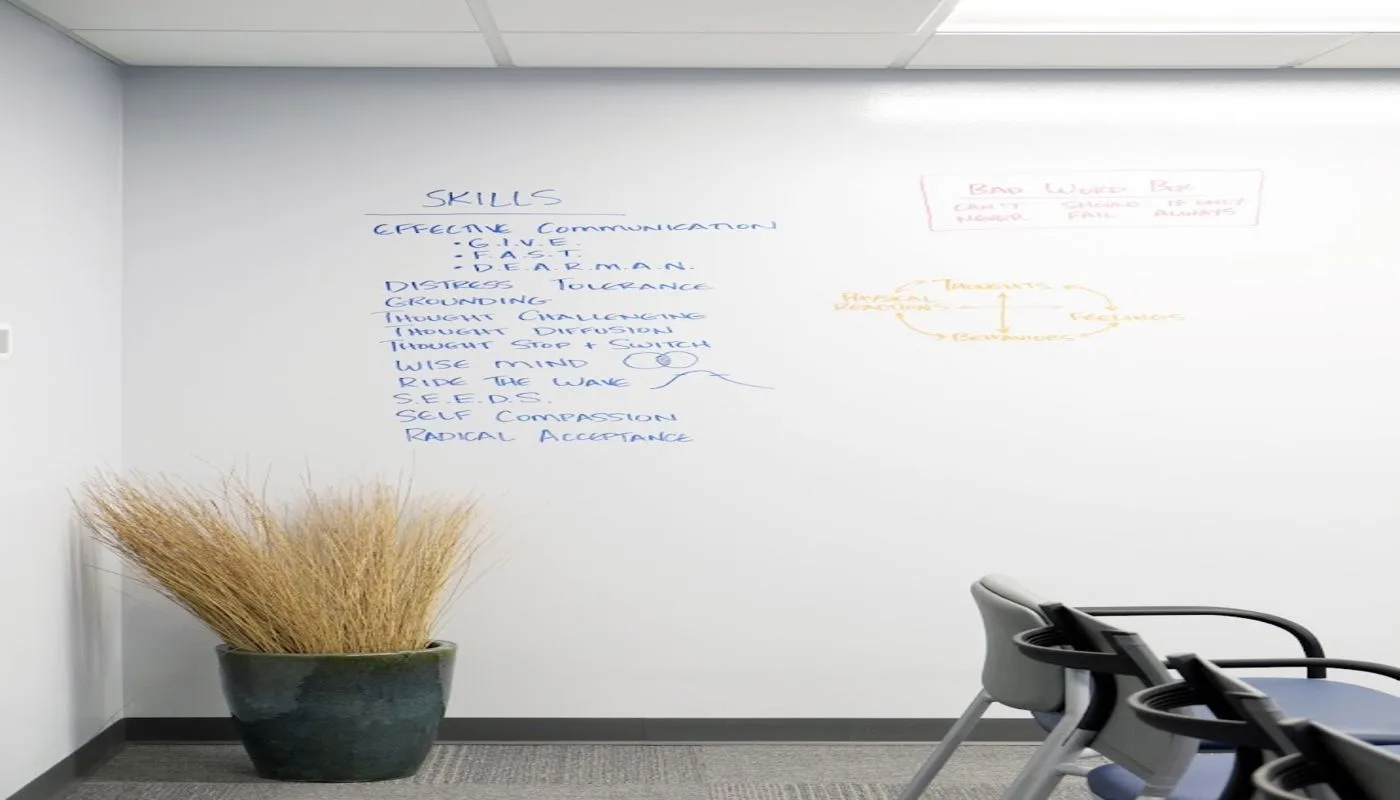 SKILLS
EFFECTIVE COMMUNICATION
• G.I.V.E.
• F.A.S.T.
• D.E.A.R.M.A.N.
DISTRESS TOLERANCE
GROUNDING
THOUGHT CHALLENGING
THOUGHT DIFFUSION
THOUGHT STOP + SWITCH
WISE MIND
RIDE THE WAVE
S.E.E.D.S.
SELF COMPASSION
RADICAL ACCEPTANCE
BAD WORD BOX
CAN'T SHOULD IF ONLY
NEVER FAIL ALWAYS
THOUGHTS
PHYSICAL
REACTIONS
FEELINGS
BEHAVIORS